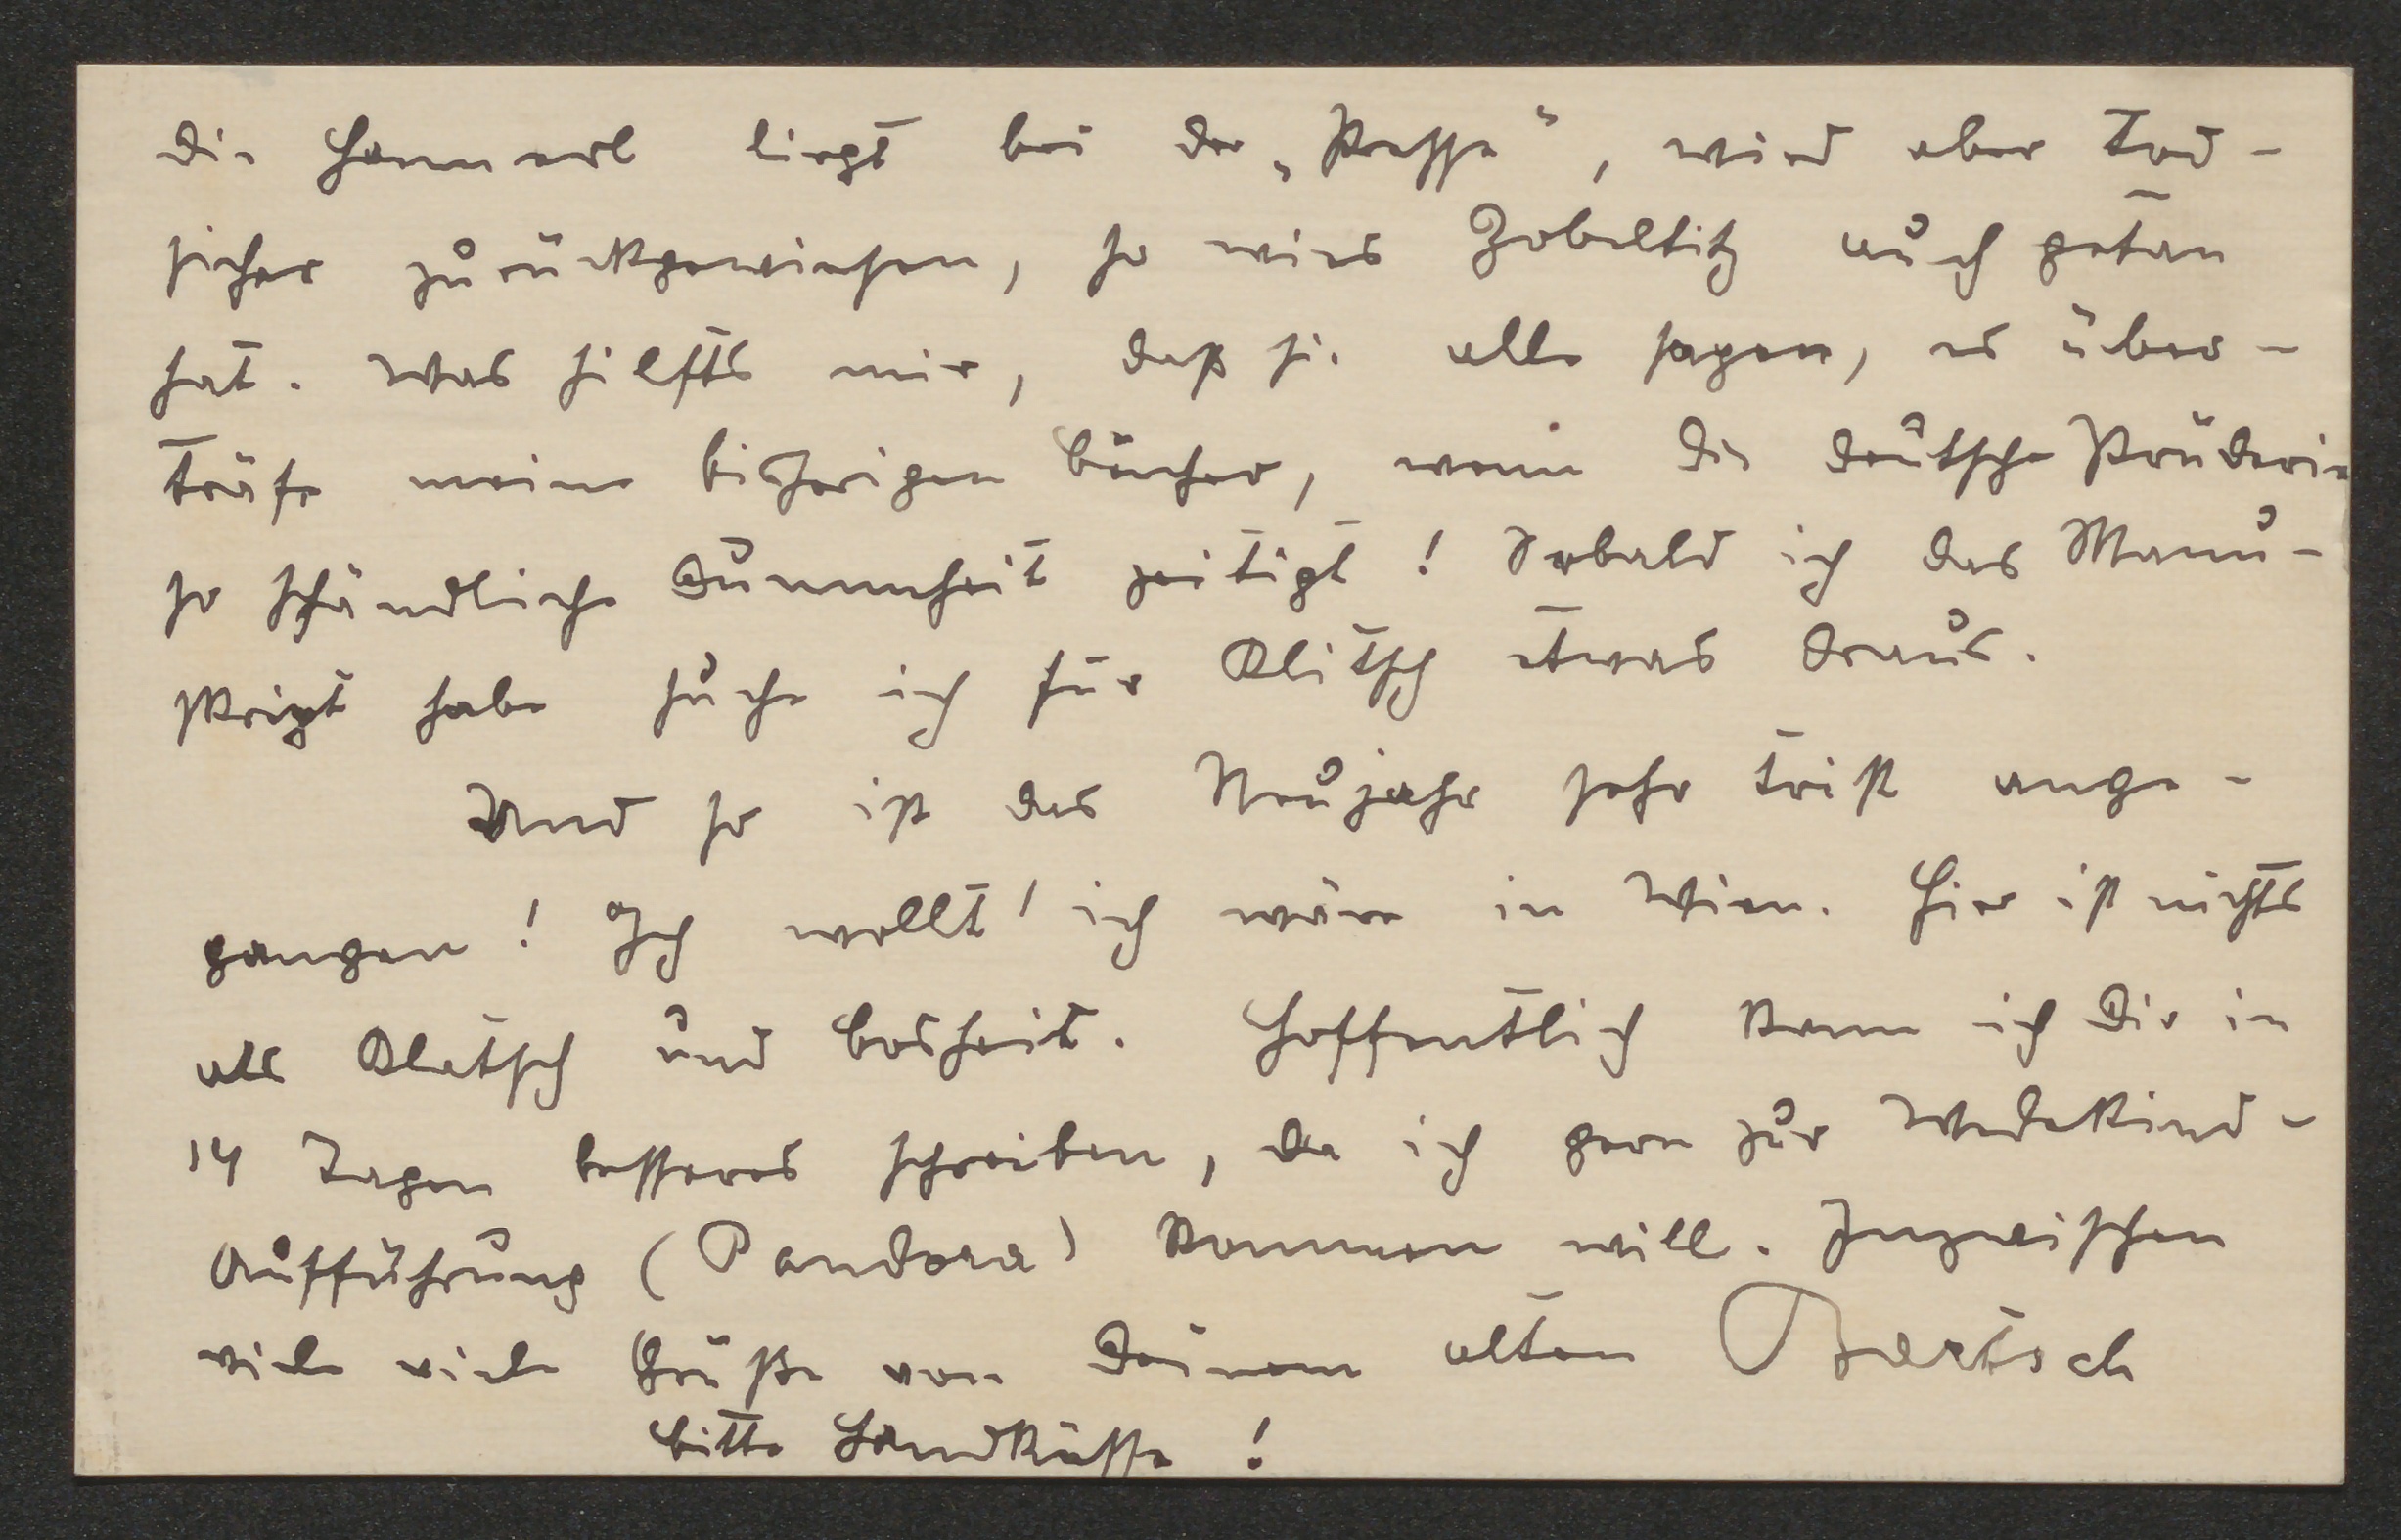 Die Hannerl liegt bei der „Presse“, wird aber tod-
sicher zurückgewiesen, so wies Zobeltitz auch getan
hat. Was hilfts mir, daß sie alle sagen, es über-
träfe meine bisherigen Bücher, wenn die deutsche Prüderie
so schändliche Dummheit zeitigt! Sobald ich das Manu-
skript habe suche ich für Klitsch etwas draus.
Und so ist das Neujahr sehr trist ange-
gangen! Ich wollt' ich wäre in Wien. Hier ist nichts
als Klatsch und Bosheit. Hoffentlich kann ich Dir in
14 Tagen besseres schreiben, da ich gern zur Wedekind-
Aufführung (Pandora) kommen will. Inzwischen
viele viele Grüße von Deinem alten Bartsch
bitte Handküsse!